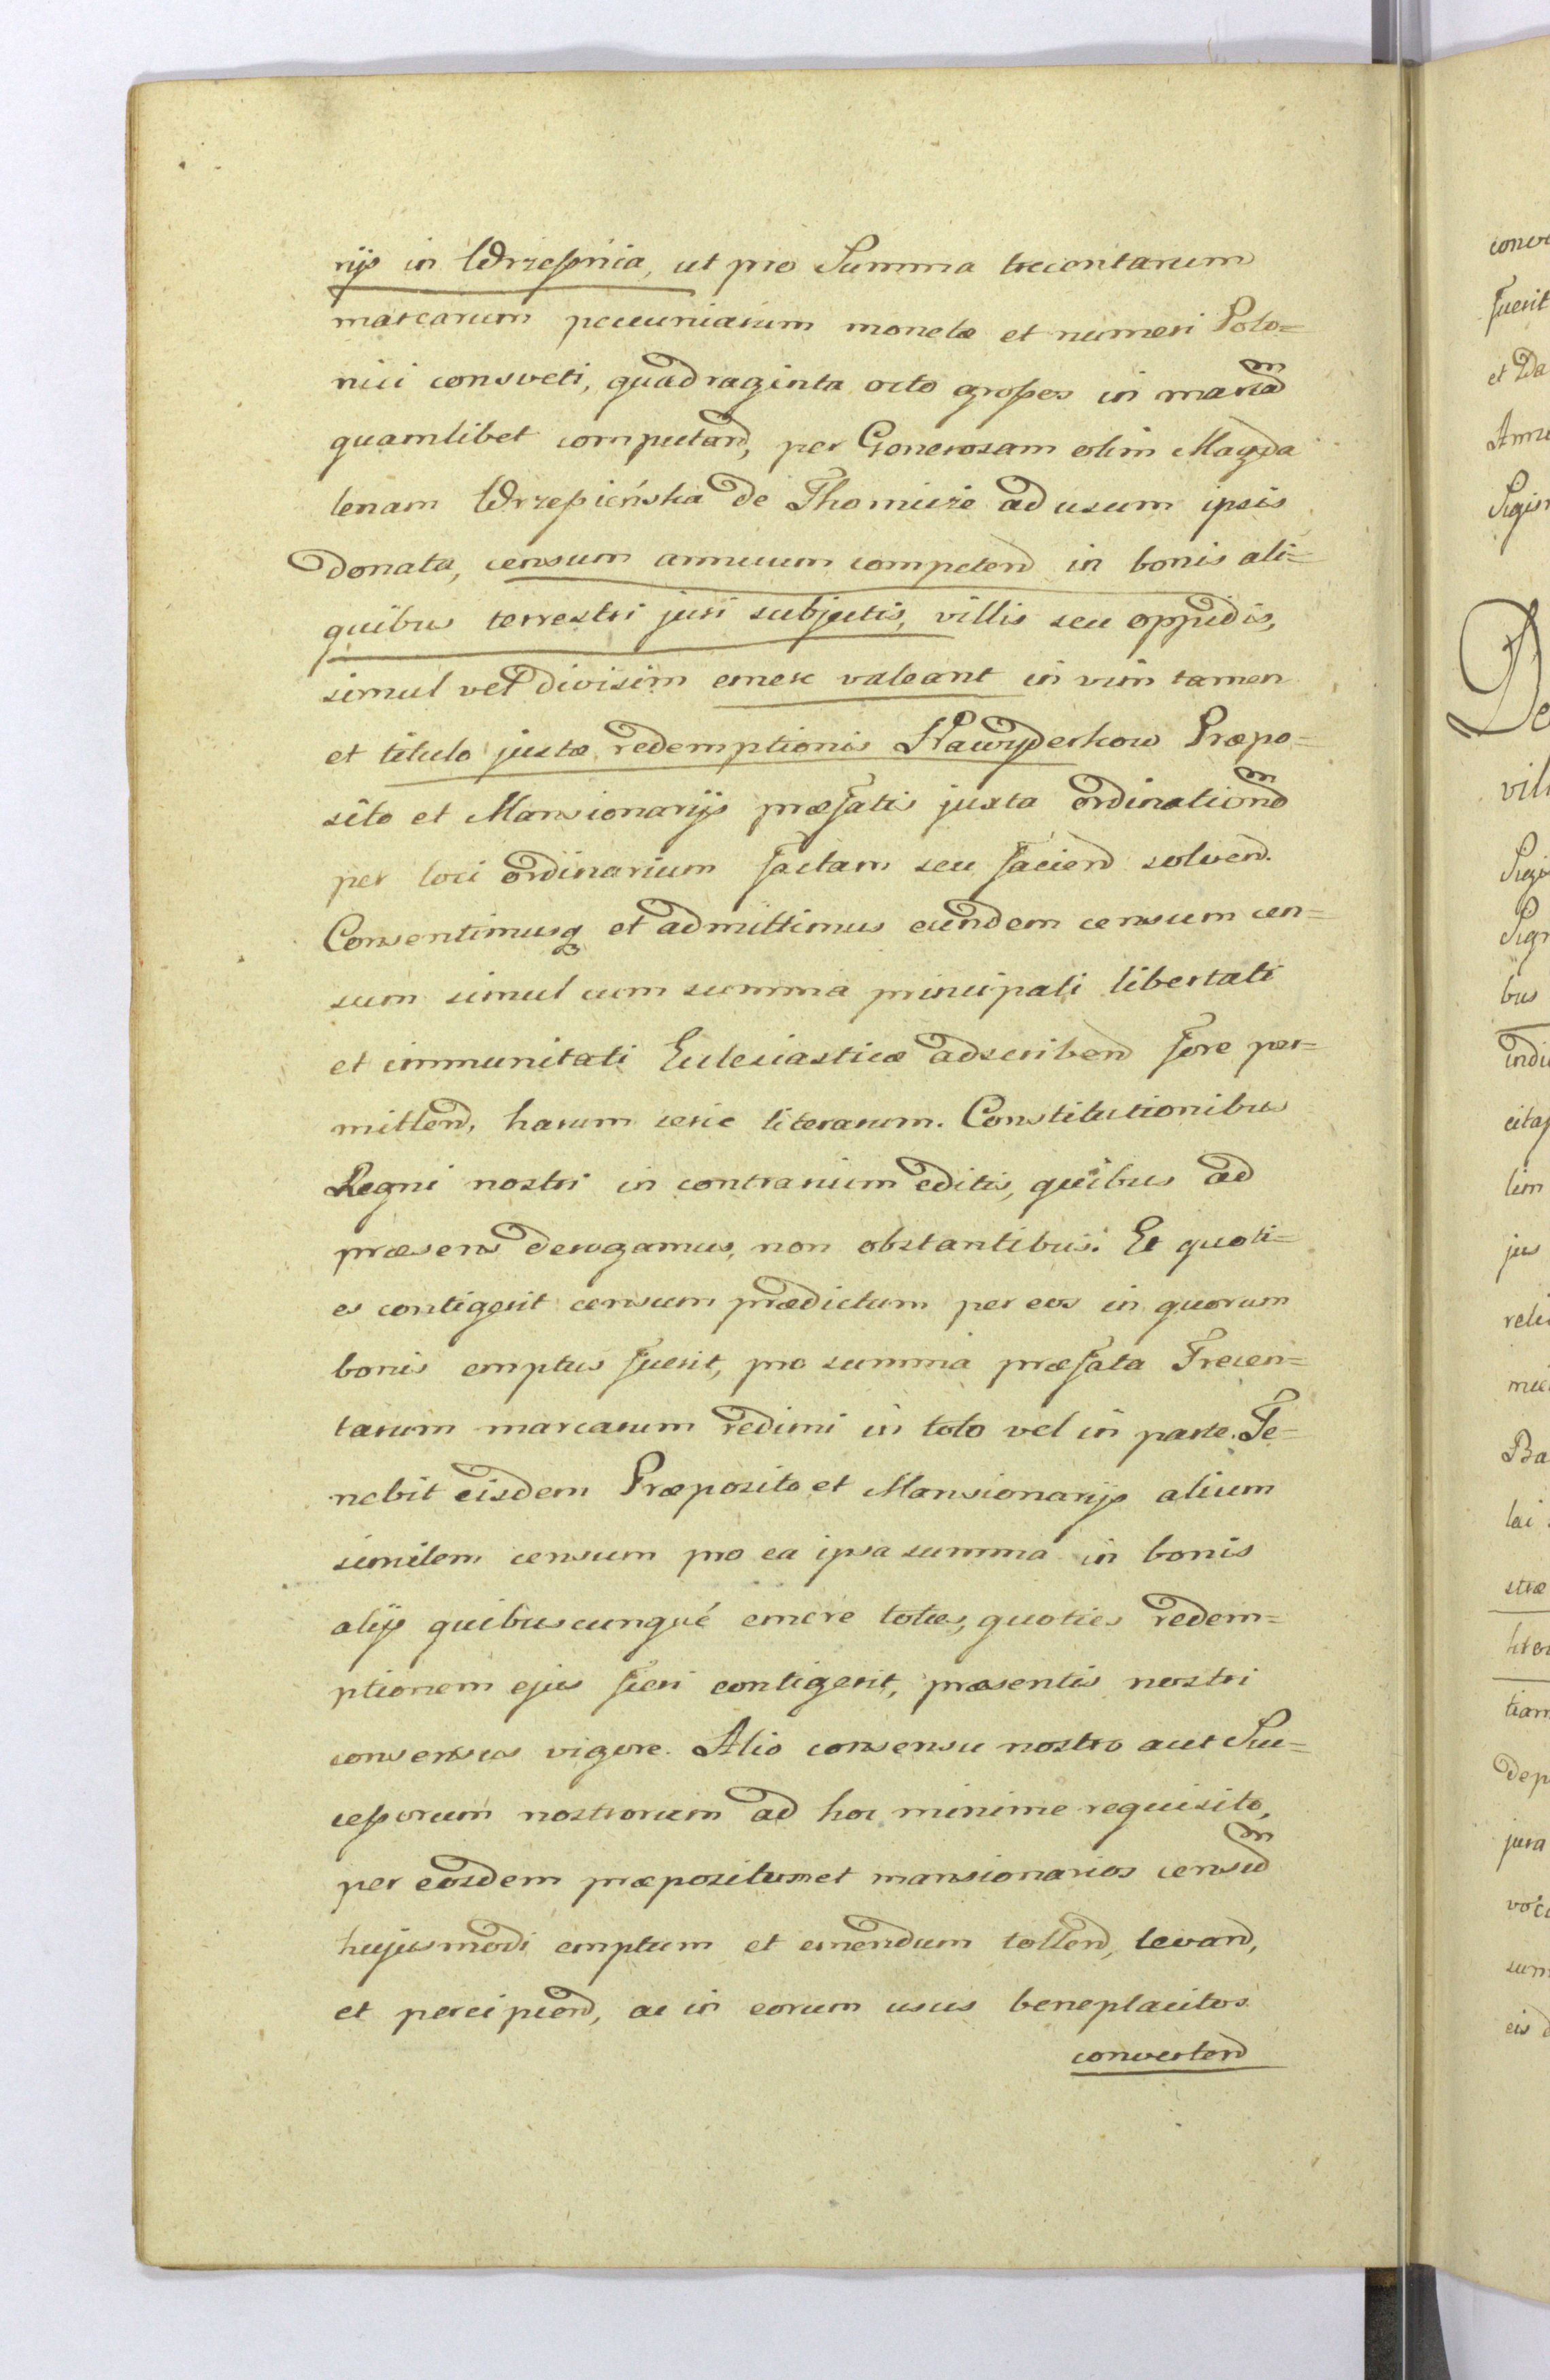 rijs in Wrzeßnia, ut pro Summa trecentarum
marcarum pecuniarum monetæ et numeri Polo=
nici consveti, quadraginta octo großos in marcam
quamlibet computand, per Generosam olim Magda
lenam Wrzeßieńska de Thomicze ad usum ipsis
donata, censum annuum competend in bonis ali=
quibus terrestri juri subjectis, villis seu oppidis,
simul vel divisim emere valeant in vim tamen
et titulo justæ redemptionis Præpo=
sito et Mansionarijs præfatis juxta ordinationem
per loci ordinarium factam seu faciend solvend.
Consentimusq et admittimus eundem censum cen=
sum simul cum summa principali libertati
et immunitati Eclesiasticæ adscribend fore per=
mittend, harum serie literarum. Constitutionibus
Regni nostri in contrarium editis, quibus ad
præsens derogamus, non obstantibus. Et quoti=
es contigerit censum prædictum per eos in quorum
bonis emptus fuerit, pro summa præfata Trecen=
tarum marcarum redimi in toto vel in parte. Te=
nebit eisdem Præposito et Mansionarijs alium
similem censum pro ea ipsa summa in bonis
alijs quibuscunqué emere toties, quoties redem=
ptionem ejus fieri contigerit, præsentis nostri
consensus vigore. Alio consensu nostro aut Suc=
ceßorum nostrorum ad hoc minime requisito,
per eosdem præpositum et mansionarios censum
hujusmodi emptum et emendum tollend, levand,
et percipiend, ac in eorum usus beneplacitos
convertend
conve
fuerit
et Da
Sigis
De
vill
Sigi
Sig
bus
indi
citap
lim
jus
reli
Ba
lai
stræ
liter
tiam
dep
jura
sum
eis d